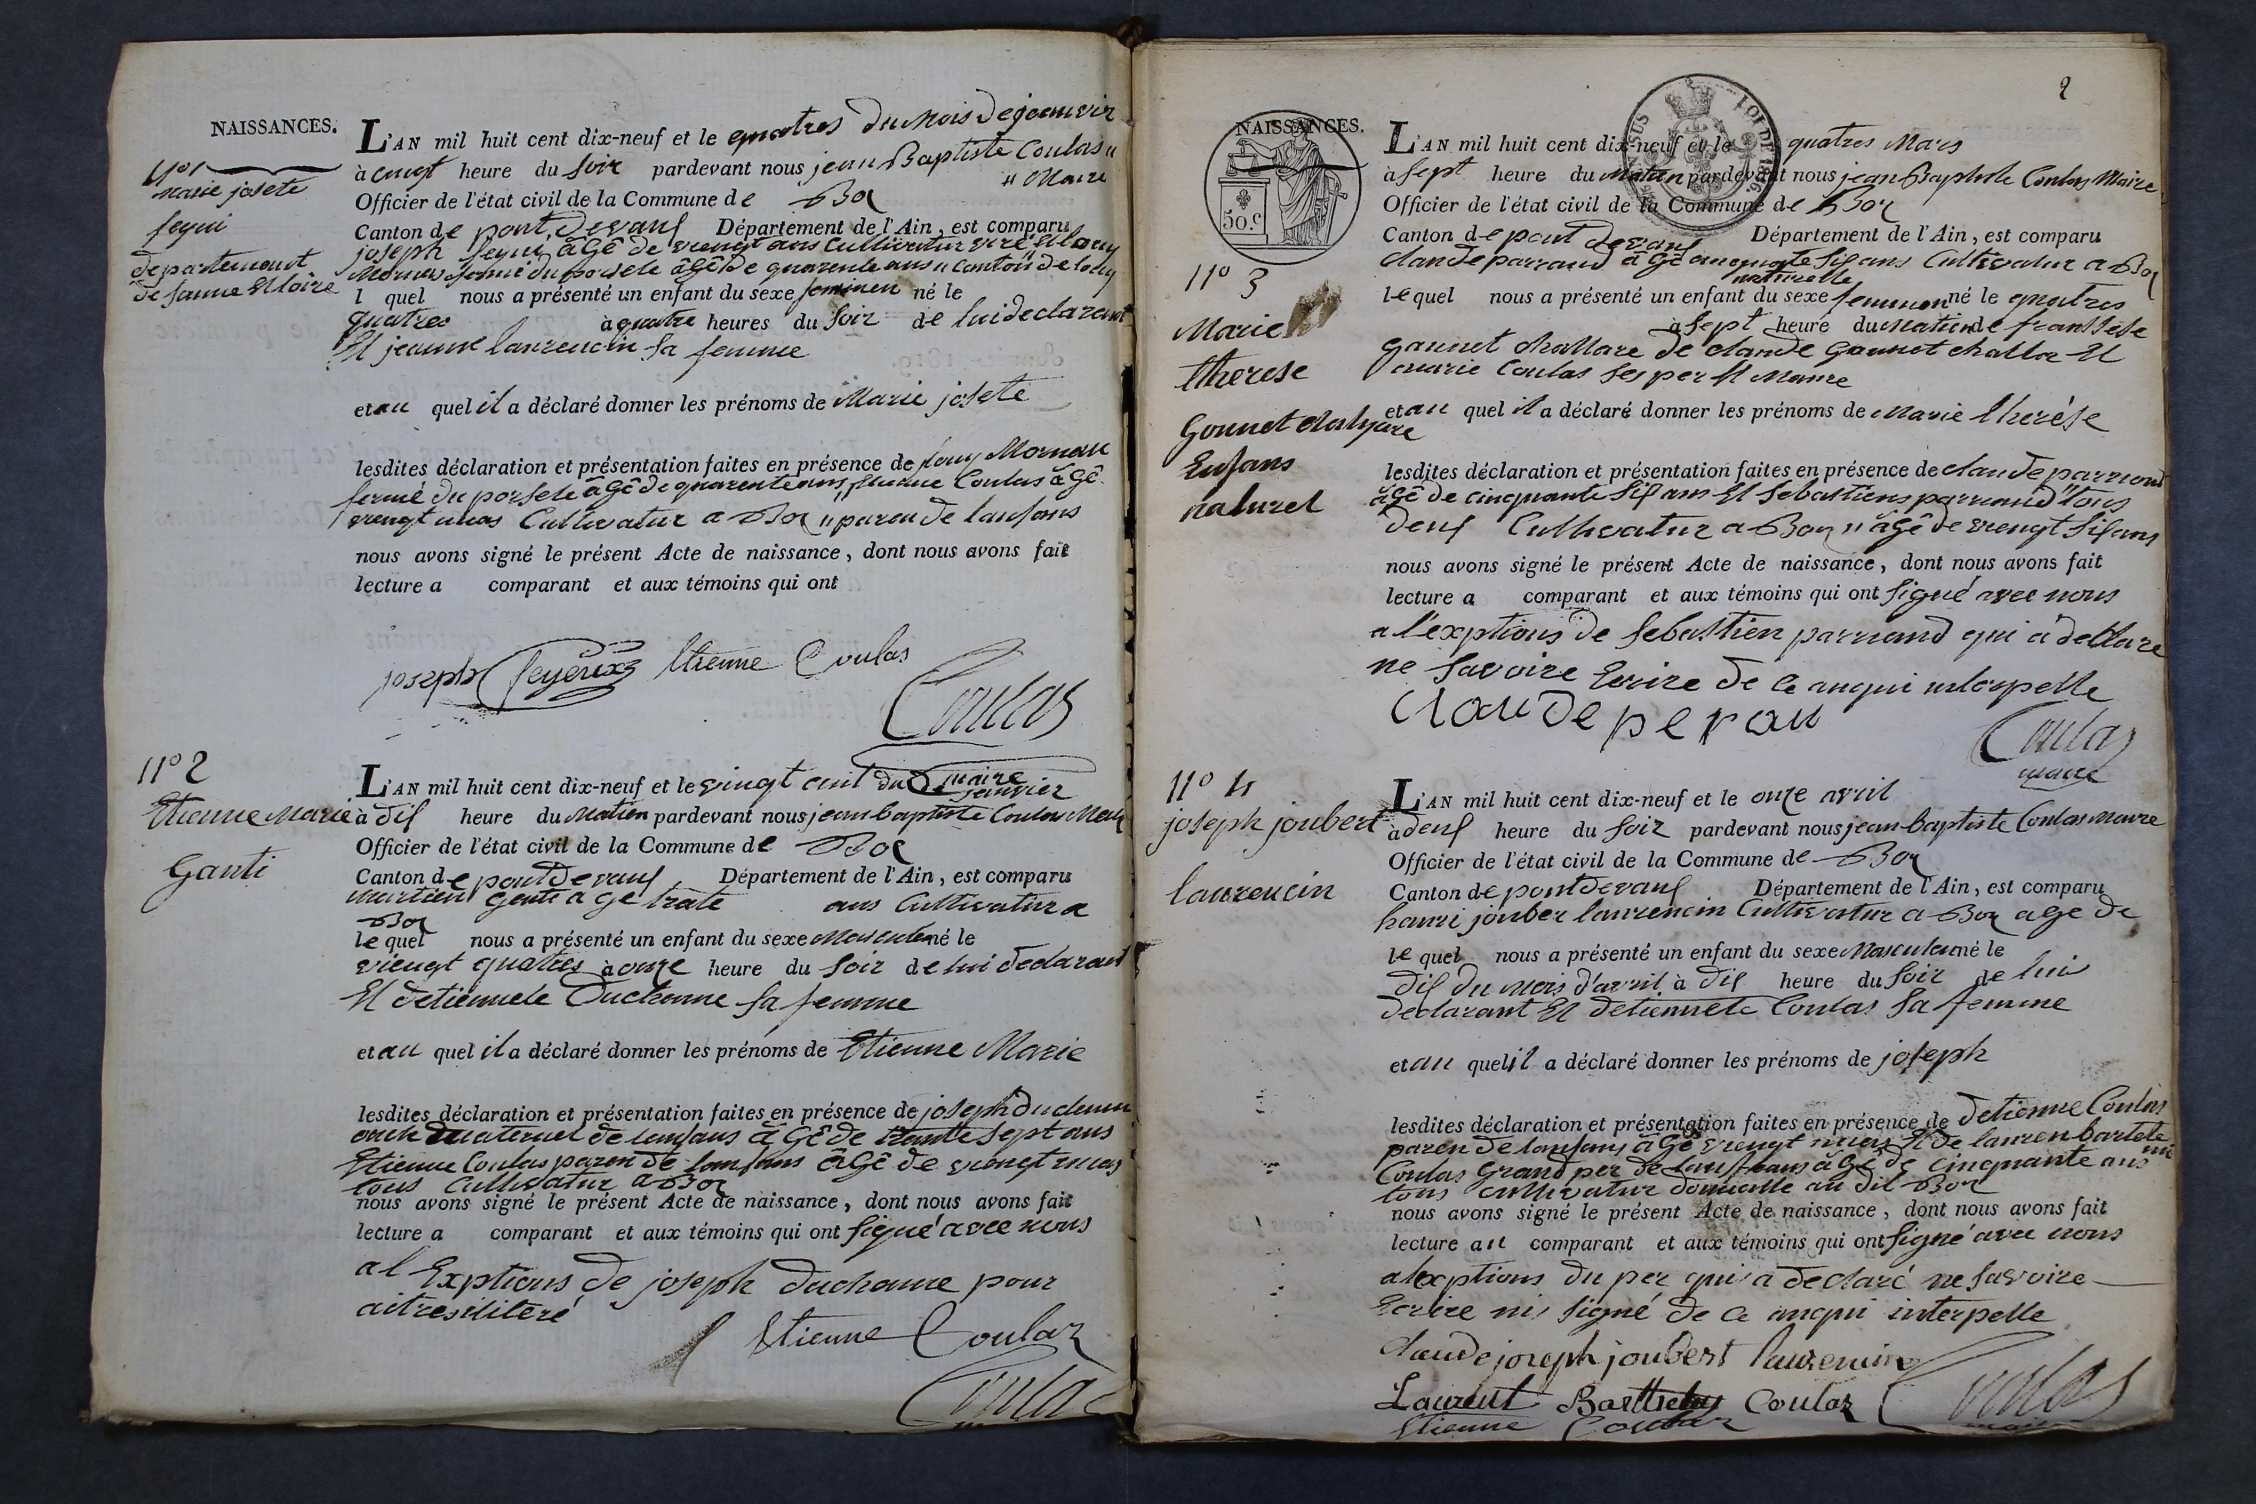 NAISSANCES.
N° 1
Marie josete
fegui
departement
de saune Et loire
L'AN mil huit cent dix-neuf et le quatres du Mois de jeanvir
à cinqt heure du soir pardevant nous jean Baptiste Coulas
" Maire
Officier de l'état civil de la Commune de Boz
Canton de pont devauf Département de l'Ain, est comparu
joseph fegui âgé de viengt ans Cultivatur
âgé de quarente ans " canton de
l quel nous a présenté un enfant du sexe feminen né le
quatres à quatre heures du soir de lui declarant
Et jeanne laurencin sa femme
et au quel il a déclaré donner les prénoms de Marie josete
lesdites déclaration et présentation faites en présence de Mornau
fermié du porsete âgé de quarente ans, Etienne Coulas âgé
viengt Cultivatur a Boz " paren de lanfans
nous avons signé le présent Acte de naissance, dont nous avons fait
lecture a comparant et aux témoins qui ont
joseph feyeux Etienne Coulas
Coulas
maire
N° 2
Etienne Marie
Ganti
L'AN mil huit cent dix-neuf et le vingt cint du janvier
à dif heure du Matien pardevant nous jean baptiste Coulas Mair
Officier de l'état civil de la Commune de Boz
Canton de pont devauf Département de l'Ain, est comparu
Martien Genti a ge trate ans Cultivatur a
Boz
le quel nous a présenté un enfant du sexe Masculen né le
viengt quatres à onze heure du soir de lui declarant
Et detiennete Duchenne sa femme
et au quel il a déclaré donner les prénoms de Etienne Marie
lesdites déclaration et présentation faites en présence de joseph duchenn
oncle Maternel de lanfans âgé de trante sept ans
Etienne Coulas paren de lanfans âgé de viengt
tous Cultivatur a Boz
nous avons signé le présent Acte de naissance, dont nous avons fait
lecture a comparant et aux témoins qui ont signé avec nous
a l Exptions de joseph duchanne pour
aitres iliteré
Etienne Coulaz
Coulas
2
NAISSANCES.
50.c
LOI DE 1816.
N° 3
Marie
therese
Gonnet chalyare
Enfans
naturel
L'AN mil huit cent dix-neuf et le quatres Mars
à sept heure du Matien pardevant nous jean Baptiste Coulas Maire
Officier de l'état civil de la Commune de Boz
Canton de pont devauf Département de l'Ain, est comparu
claude parraud âgé cinquante sif ans Cultivatur a Boz
naturelle
le quel nous a présenté un enfant du sexe femenen né le quatres
à sept heure du Matien de franssese
gannet challare de claude gannet challar Et
marie Coulas ses per Et Maire
et au quel il a déclaré donner les prénoms de Marie therése
lesdites déclaration et présentation faites en présence de claude parraud
âgé de cinquante sif ans Et sebastiens parraud " tous
deuf Cultivatur a Boz " âgé de viengt sif ans
nous avons signé le présent Acte de naissance, dont nous avons fait
lecture a comparant et aux témoins qui ont signé avec nous
a l'exptions de sebastien parraud qui a declare
ne savoire Ecrire de ce anqui intarpelle
Claude perau
Coulaz
maire
N° 4
joseph joubert
laurencin
L'AN mil huit cent dix-neuf et le onze avril
à deuf heure du soir pardevant nous jean-baptiste Coulas Maire
Officier de l'état civil de la Commune de Boz
Canton de pont devauf Département de l'Ain, est comparu
hanri jouber laurencin Cultivatur a Boz age de
le quel nous a présenté un enfant du sexe Masculen né le
dif du Mois d'avril à dif heure du soir de lui
declarant Et detiennete Coulas sa femme
et au quel il a déclaré donner les prénoms de joseph
lesdites déclaration et présentation faites en présence de detienne Coulas
paren de lanfans âgé viengt Et de lauren bartele
mi
Coulas Grand per de lanfans âgé de cinquante ans
tous cultivatur domicille au dit Boz
nous avons signé le présent Acte de naissance, dont nous avons fait
lecture au comparant et aux témoins qui ont signé avec nous
a lexptions du per qui a declaré ne savoire
Ecrire ni signé de ce anqui interpelle
Claude joseph joubert laurencin
Laurent Barthelmy Coulaz Coulas
Etienne Coulaz